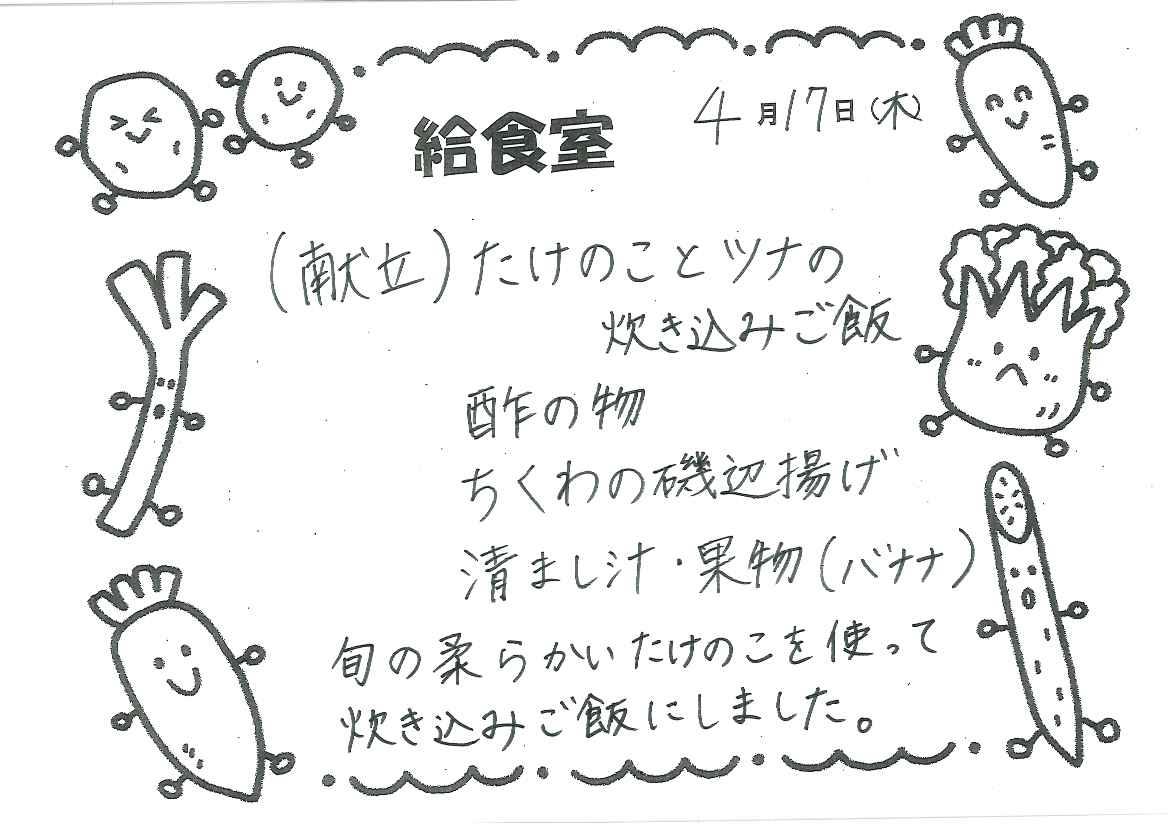 給食室 4月17日(木)
(献立)たけのことツナの
炊き込みご飯
酢の物
ちくわの磯辺揚げ
清まし汁・果物(バナナ)
旬の柔らかいたけのこを使って
炊き込みご飯にしました。